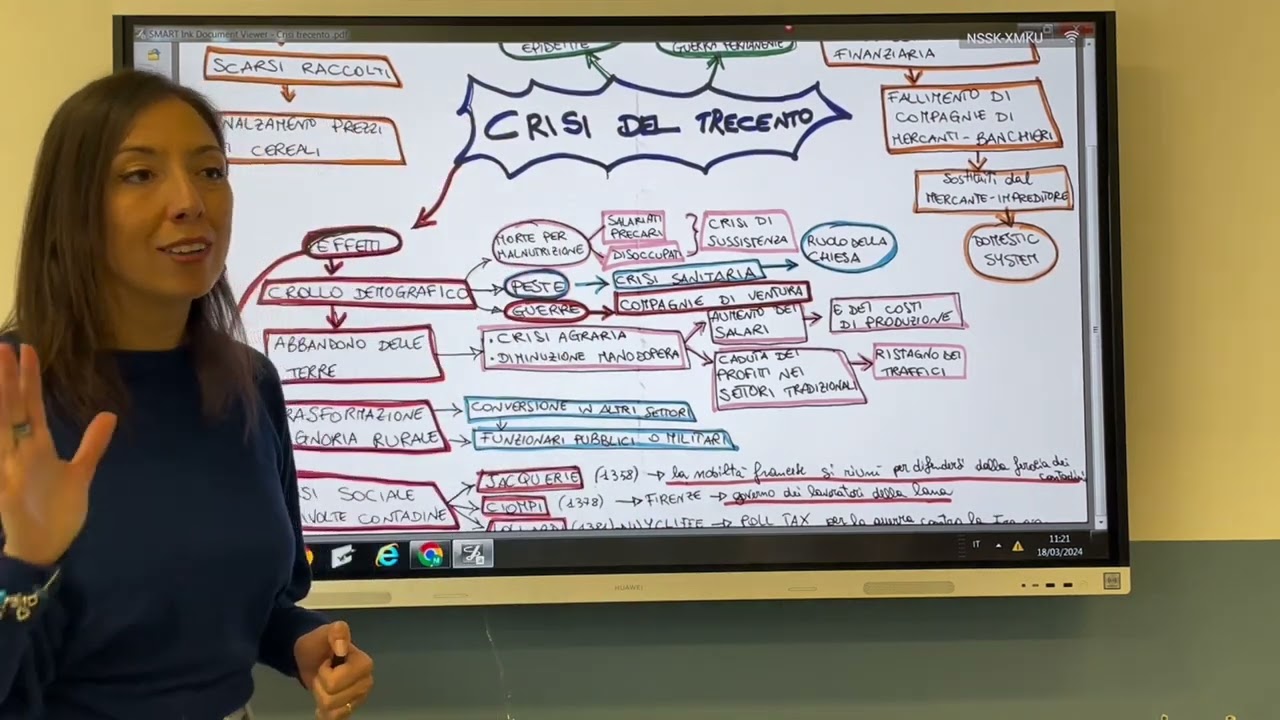 SMART Ink Document Viewer - Crisi trecento .pdf
NSSK-XMKU
EPIDEMIE
GUERRA PERMANENTE
FINANZIARIA
SCARSI RACCOLTI
NALZAMENTO PREZZI
CEREALI
CRISI DEL TRECENTO
FALLIMENTO DI
COMPAGNIE DI
MERCANTI-BANCHIERI
Sostituiti dal
MERCANTE-IMPREDITORE
DOMESTIC
SYSTEM
EFFETTI
CROLLO DEMOGRAFICO
MORTE PER
MALNUTRIZIONE
SALARIATI
PRECARI
DISOCCUPATI
CRISI DI
SUSSISTENZA
RUOLO DELLA
CHIESA
PESTE
CRISI SANITARIA
GUERRE
COMPAGNIE DI VENTURA
ABBANDONO DELLE
TERRE
• CRISI AGRARIA
• DIMINUZIONE MANODOPERA
AUMENTO DEI
SALARI
E DEI COSTI
DI PRODUZIONE
CADUTA DEI
PROFITTI NEI
SETTORI TRADIZIONALI
RISTAGNO DEI
TRAFFICI
RASFORMAZIONE
GNORIA RURALE
CONVERSIONE IN ALTRI SETTORI
FUNZIONARI PUBBLICI O MILITARI
SI SOCIALE
VOLTE CONTADINE
JACQUERIE (1358) → la nobiltà francese si riunì per difendersi dalla ferocia dei
contadini
CIOMPI (1378) → FIRENZE → governo dei lavoratori della lana
WYCLIFFE → POLL TAX per la guerra contro la Francia
IT
11:21
18/03/2024
HUAWEI